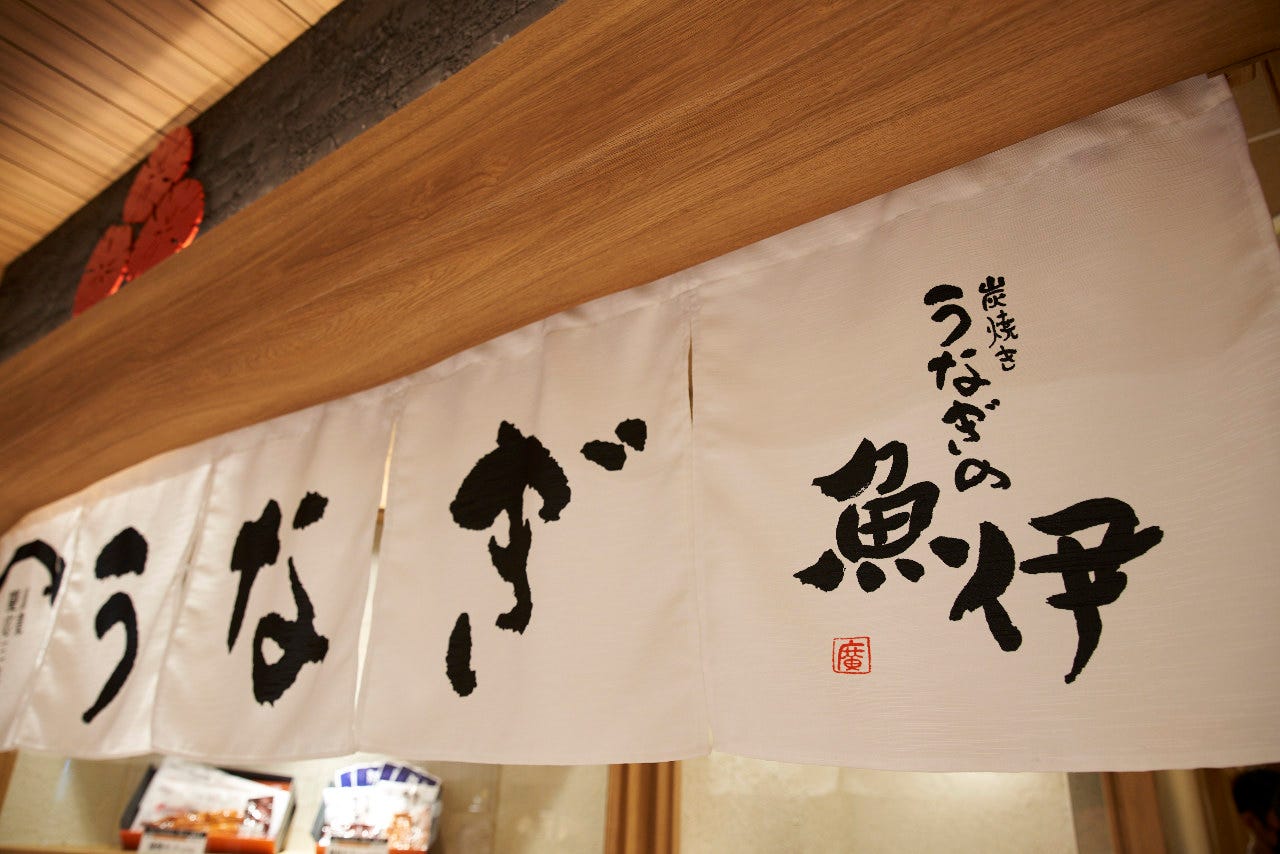 うなぎ
炭焼き
うなぎの
魚伊
廣